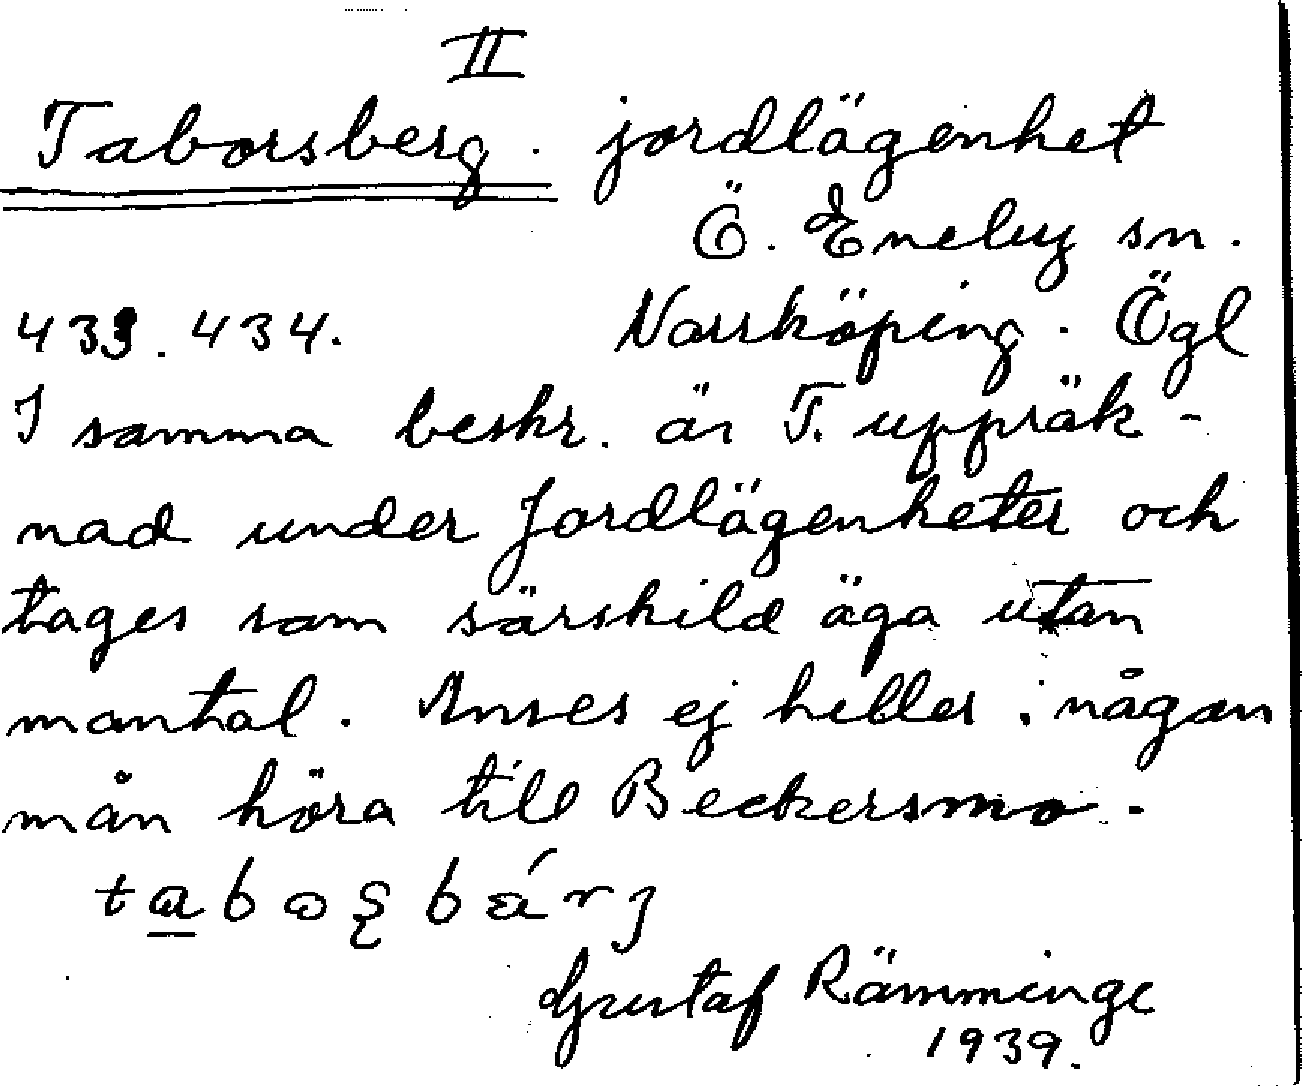 II
Taborsberg. jordlägenhet
Ö. Eneby sn.
433. 434. Norrköping. Ögl
I samma beskr. är T. uppräk-
nad under Jordlägenheter och
tages som särskild äga utan
mantal. Anses ej heller i någon
mån höra till Beckersmo.
Gustaf Rämminge
1939.